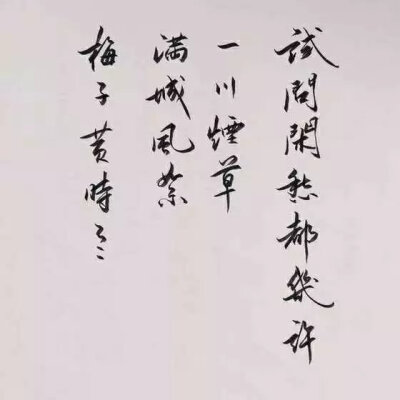 試問閑愁都幾許
一川煙草
滿城風絮
梅子黃時雨